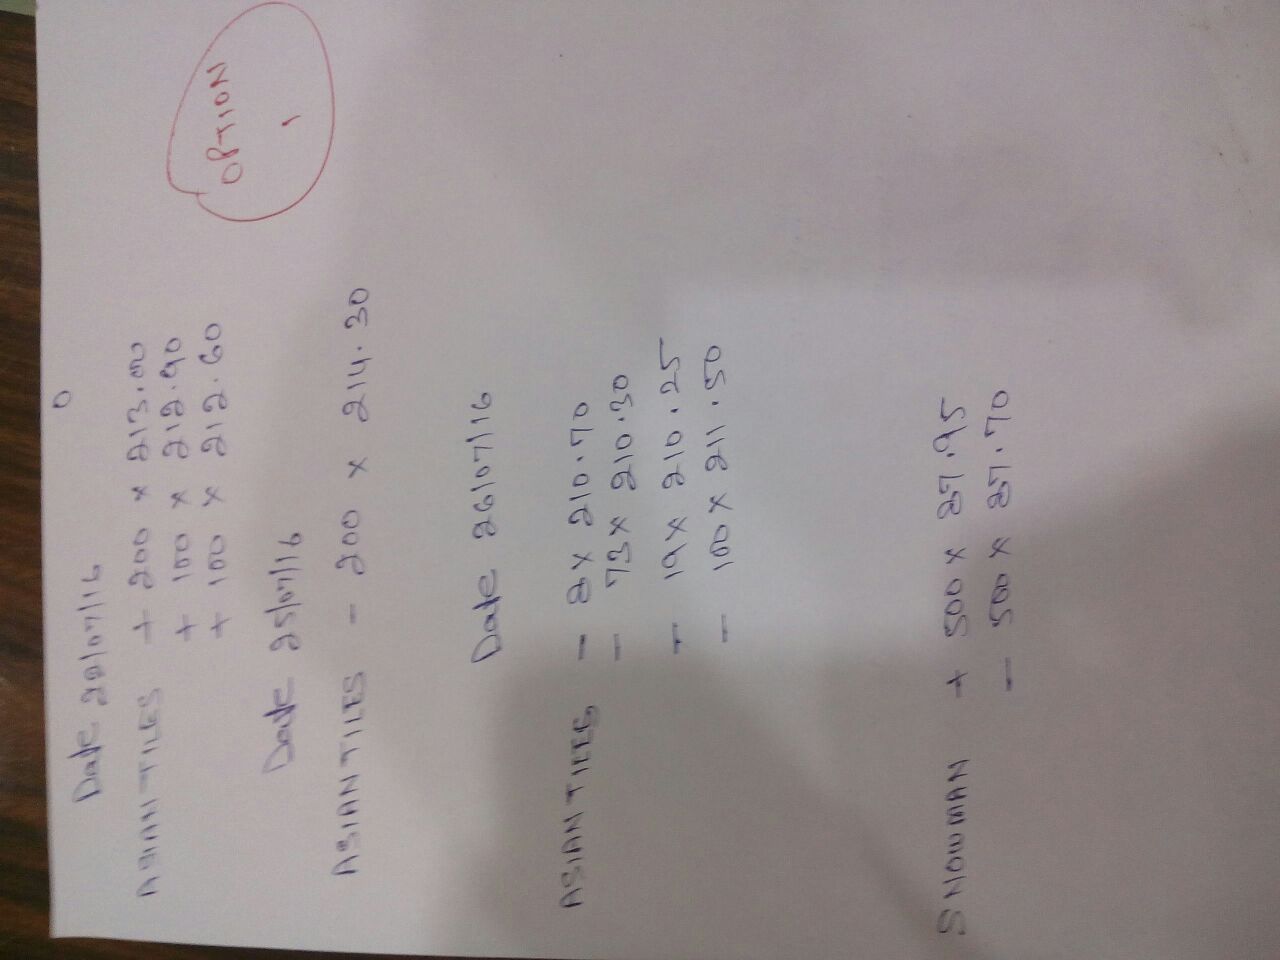 OPTION
1
Date 22/07/16
ASIAN TILES + 200 x 213.00
+ 100 x 212.90
+ 100 x 212.60
Date 25/07/16
ASIAN TILES - 200 x 214.30
Date 26/07/16
ASIAN TILES - 8 x 210.70
- 73 x 210.30
- 19 x 210.25
- 100 x 211.50
SNOWMAN + 500 x 27.95
- 500 x 27.70